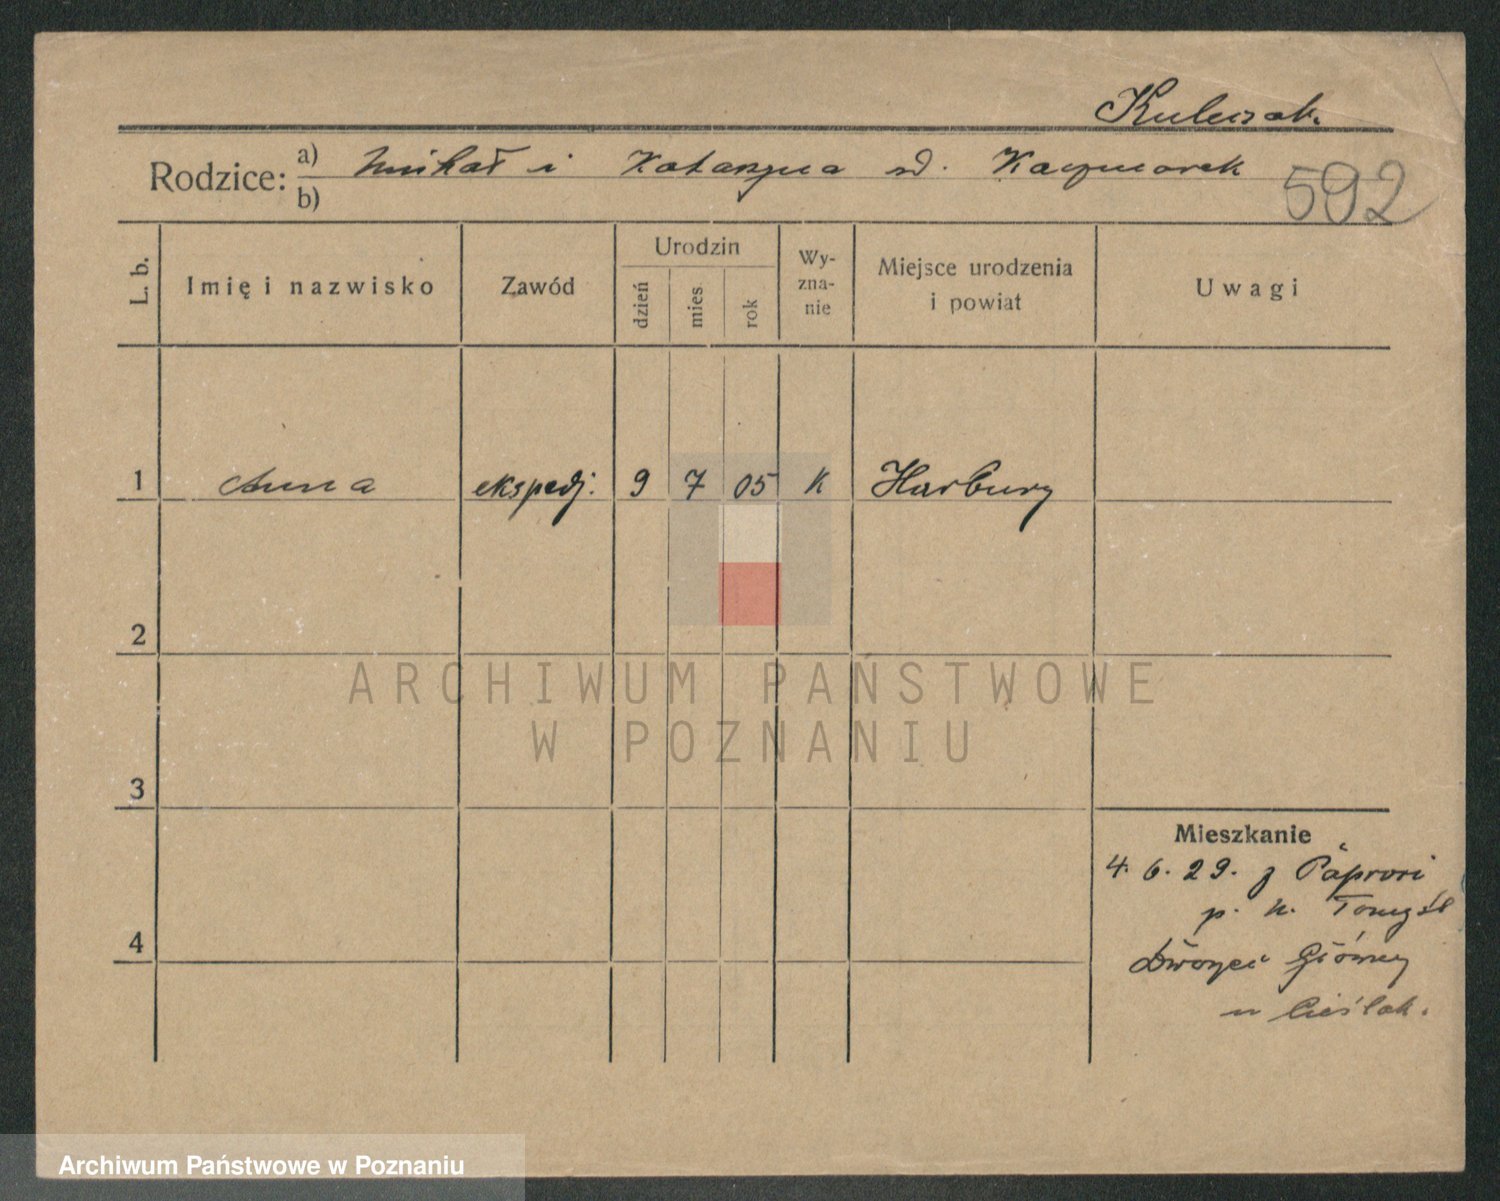 Kulczak.
Rodzice: a) Michał i Katarzyna zd. Kaczmarek
b)
592
L. b. Imię i nazwisko Zawód Urodzin dzień mies rok Wy-zna-nie Miejsce urodzenia i powiat Uwagi
1 Anna ekspedj. 9 7 05 K Harburg
2
ARCHIWUM PAŃSTWOWE
W POZNANIU
3
Mieszkanie
4. 6. 29. z Paproci
p. n. Tomyśl
4
Dworzec Główny
u Cieślak.
Archiwum Państwowe w Poznaniu